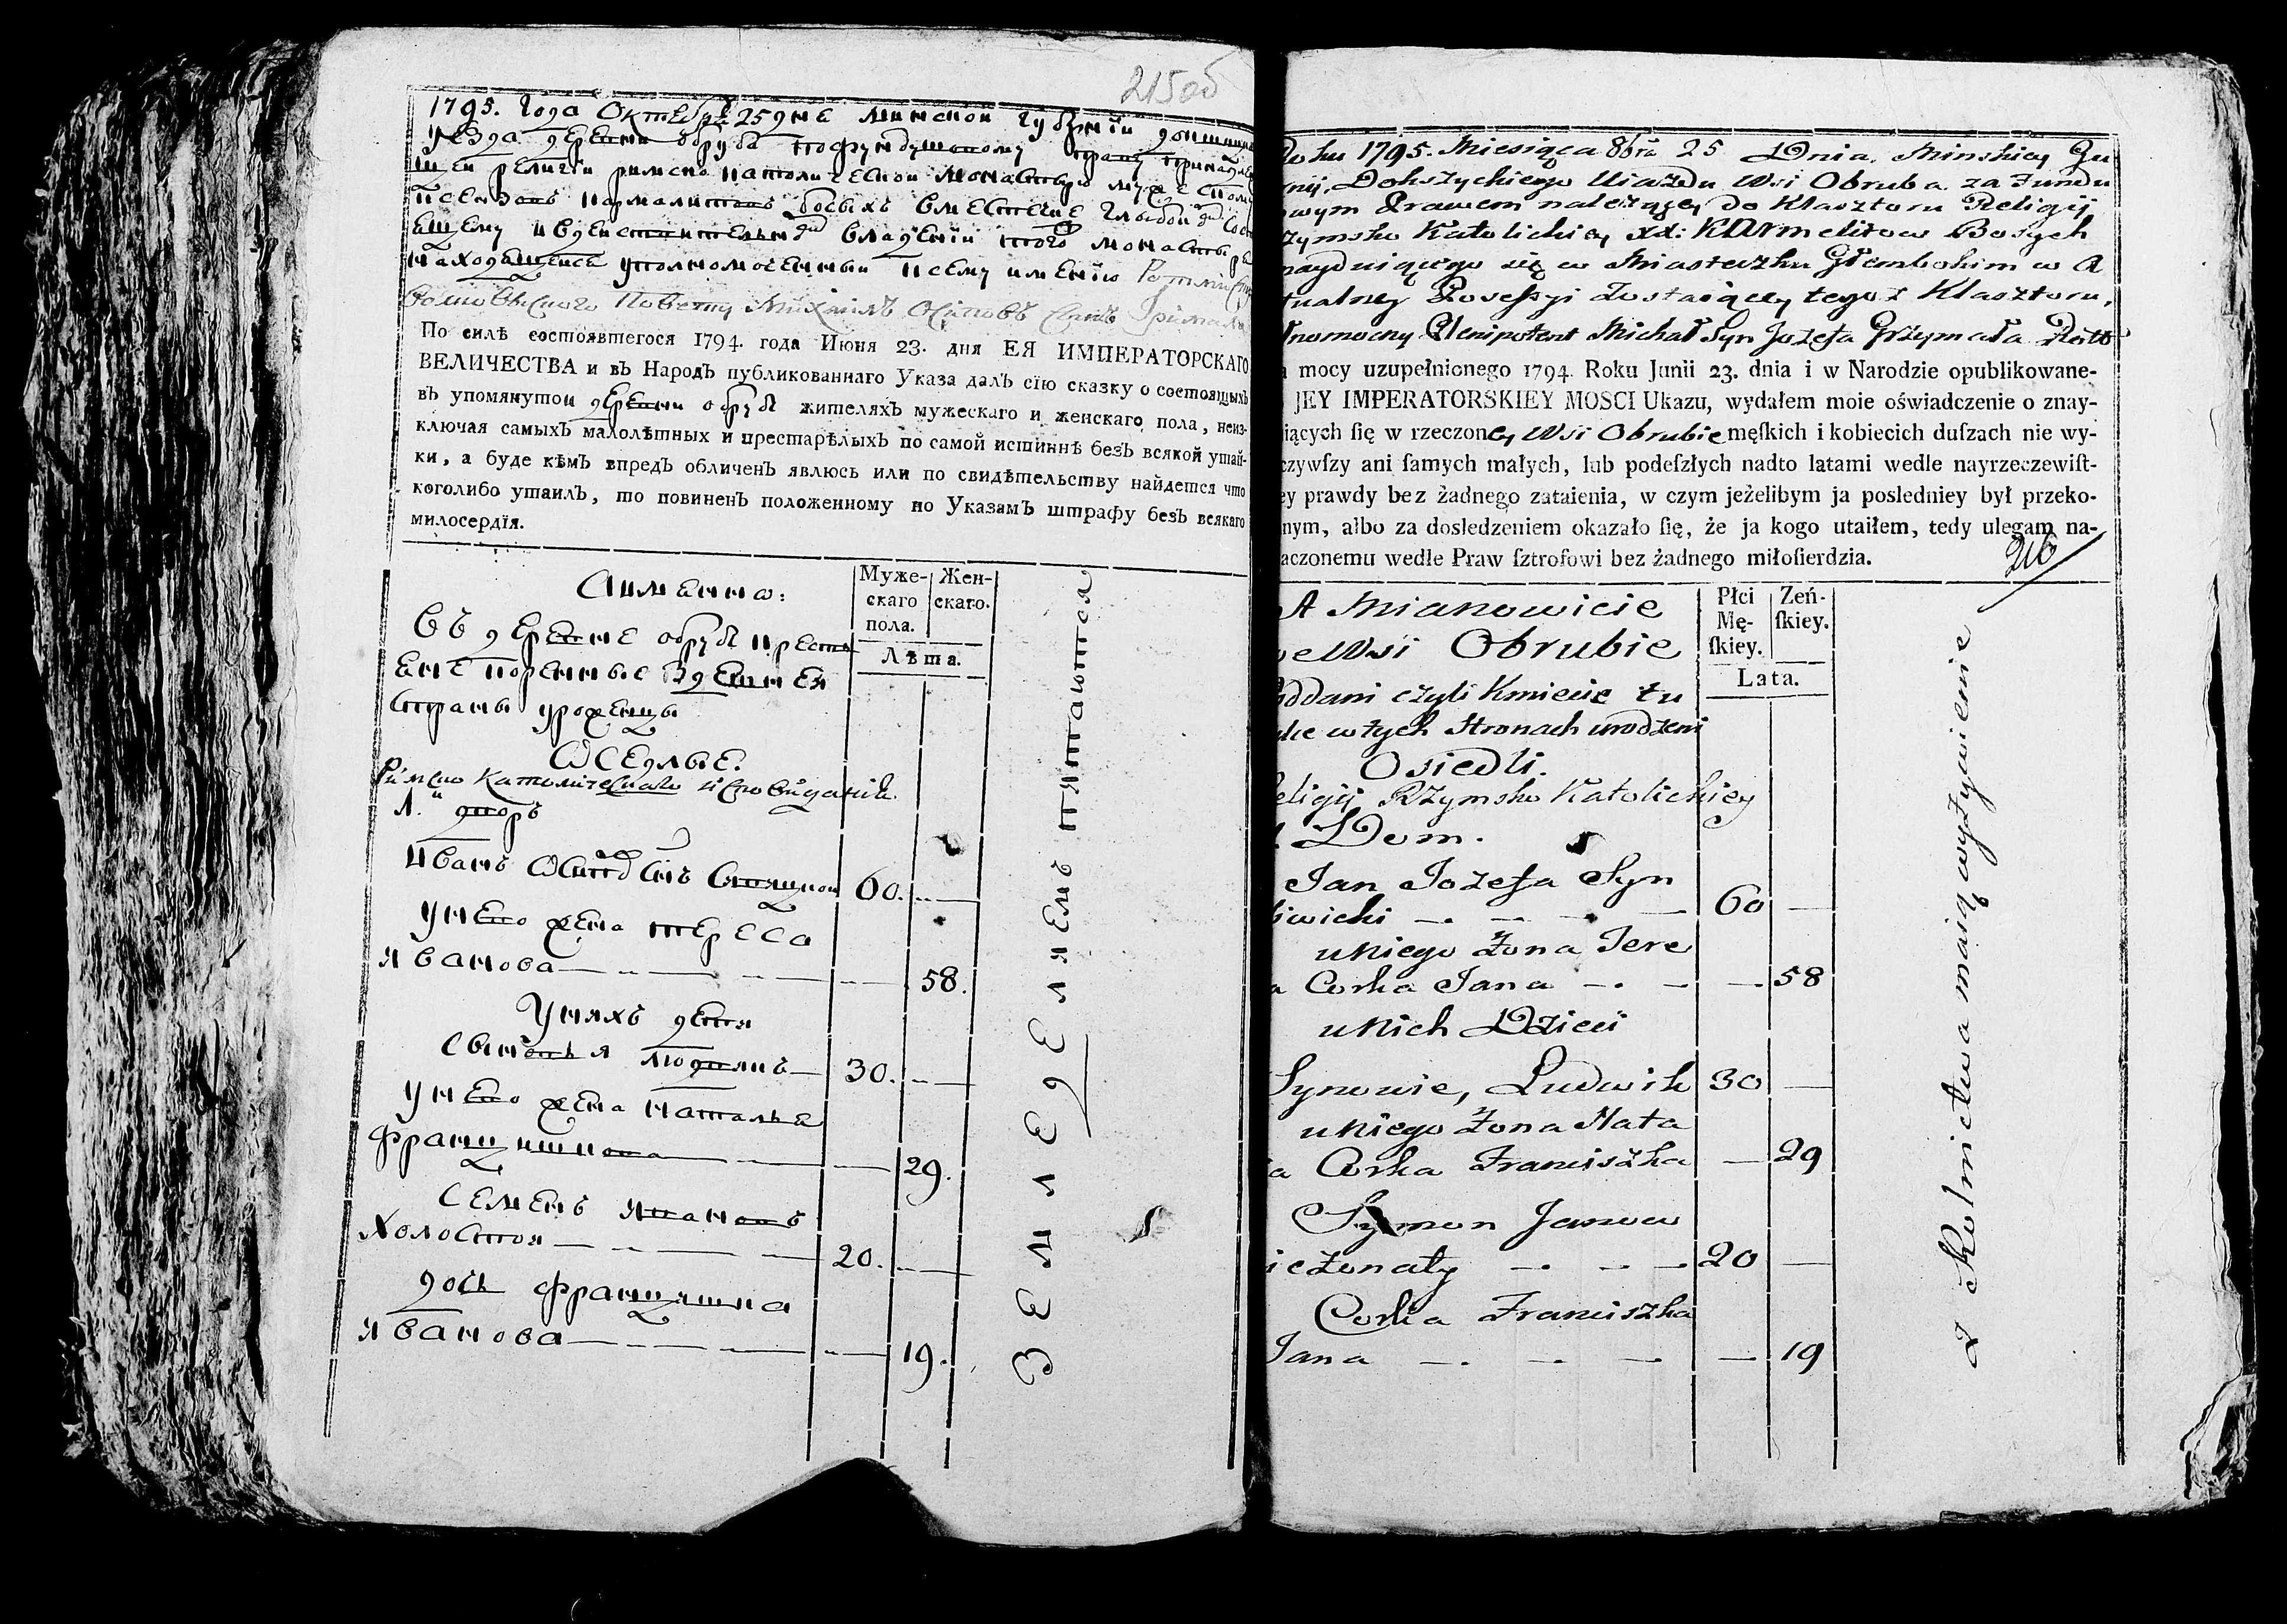 215об
1795. года Октебра 25 дне минской губернии
уезда деревни обруба по фундушовому праву
щей религии римско католической монастыру
ксендзовъ кармалитовъ босыхъ вместечке глыбокой
ещему и вдействителном владении того монастыре
находящейсе уполномоченный ксему имению
Повету Михаилъ Осиповъ Сынъ
По силѣ состоявшегося 1794. года Июня 23. дня ЕЯ ИМПЕРАТОРСКАГО
ВЕЛИЧЕСТВА и въ Народъ публикованнаго Указа далъ сїю сказку о состоящыхъ
въ упомянутой деревни обрубе жителяхъ мужескаго и женскаго пола, неиз-
ключая самыхъ малолѣтныхъ и престарѣлыхъ по самой истиннѣ безъ всякой утай-
ки, а буде кѣмъ впредъ обличенъ явлюсь или по свидѣтельству найдется что
коголибо утаилъ, то повиненъ положенному по Указамъ штрафу безъ всякаго
милосердїя.
А именно:
Муже-скаго пола. Жен-скаго.
Лѣта.
Въ деревне обрубе кресте
ене коренные здешнея
страны уроженцы
Оселые.
Римско Католическаго исповиданія
1. дворъ
Иванъ Осиповъ Снъ 60.
у него жена тереса
Яванова 58.
У няхъ дети
Сыновья людвикъ 30.
у него жена наталья
Францишкова 29.
Семенъ Явановъ
холостои 20.
дочь францишка
Яванова 19.
Roku 1795. Miesiąca 8bra 25 Dnia. Minskiey Gu
nij. Dokszyckiego Uiazdu Wsi Obruba za Fundu
owym Prawem należącey do Klasztoru Religij
zymsko Katolickiey xx: Karmelitow Bosych
nayduiącego się w Miasteczku Głembokim w A
tualney Posessyi Zostaiącey tegoż Klasztoru,
łnomocny Plenipotent Michał Syn Jozefa Grzymała Rot
a mocy uzupełnionego 1794. Roku Junii 23. dnia i w Narodzie opublikowane-
JEY IMPERATORSKIEY MOSCI Ukazu, wydałem moie oświadczenie o znay-
iących ſię w rzeczoney Wsi Obrubie męſkich i kobiecich duſzach nie wy-
czywſzy ani ſamych małych, lub podeſzłych nadto latami wedle nayrzeczewiſt-
ey prawdy bez żadnego zataienia, w czym jeżelibym ja posledniey był przeko-
nym, albo za dosledzeniem okazało ſię, że ja kogo utaiłem, tedy ulegam na-
aczonemu wedle Praw ſztrofowi bez żadnego miłoſierdzia.
216
A Mianowicie
Płci Mę-ſkiey. Zeń-ſkiey.
Lata.
we Wsi Obrubie
oddani czyli Kmiecie tu
w tych Stronach urodzeni
Osiedli.
eligij Rzymsko Katolickiey
1. Dom.
Jan Jozefa Syn
wicki 60
u Niego Żona Tere
a Corka Jana 58
u Nich Dzieci
Synowie, Ludwik 30
u Niego Żona Nata
a Corka Franciszka 29
Symon Janow
ieżonaty 20
Corka Franciszka
Jana 19
Земледелямъ пятаются
z Rolnictwa maią wyżywienie